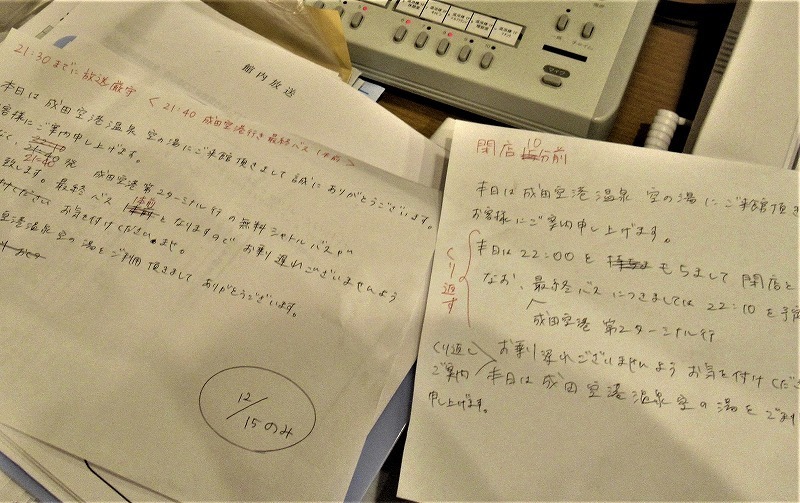 館内放送
21:30までに放送厳守
<21:40 成田空港行き最終バス1本前>
本日は成田空港温泉 空の湯にご来館頂きまして誠にありがとうございます。
客様にご案内申し上げます。
なく 21:40発 成田空港第2ターミナル行の無料シャトルバスが
致します。最終バス1本前となりますので お乗り遅れございませんよう
付けください お気を付けくださいませ。
空港温泉空の湯をご利用頂きまして ありがとうございます。
12/15のみ
閉店10分前
本日は成田空港温泉 空の湯にご来館頂き
お客様にご案内申し上げます。
くり返す
本日は22:00をもちまして閉店と
なお、最終バスにつきましては22:10を予
成田空港 第2ターミナル行
お乗り遅れございませんようお気を付けくださ
くり返し
ご案内
申し上げます。
本日は成田空港温泉空の湯をご利